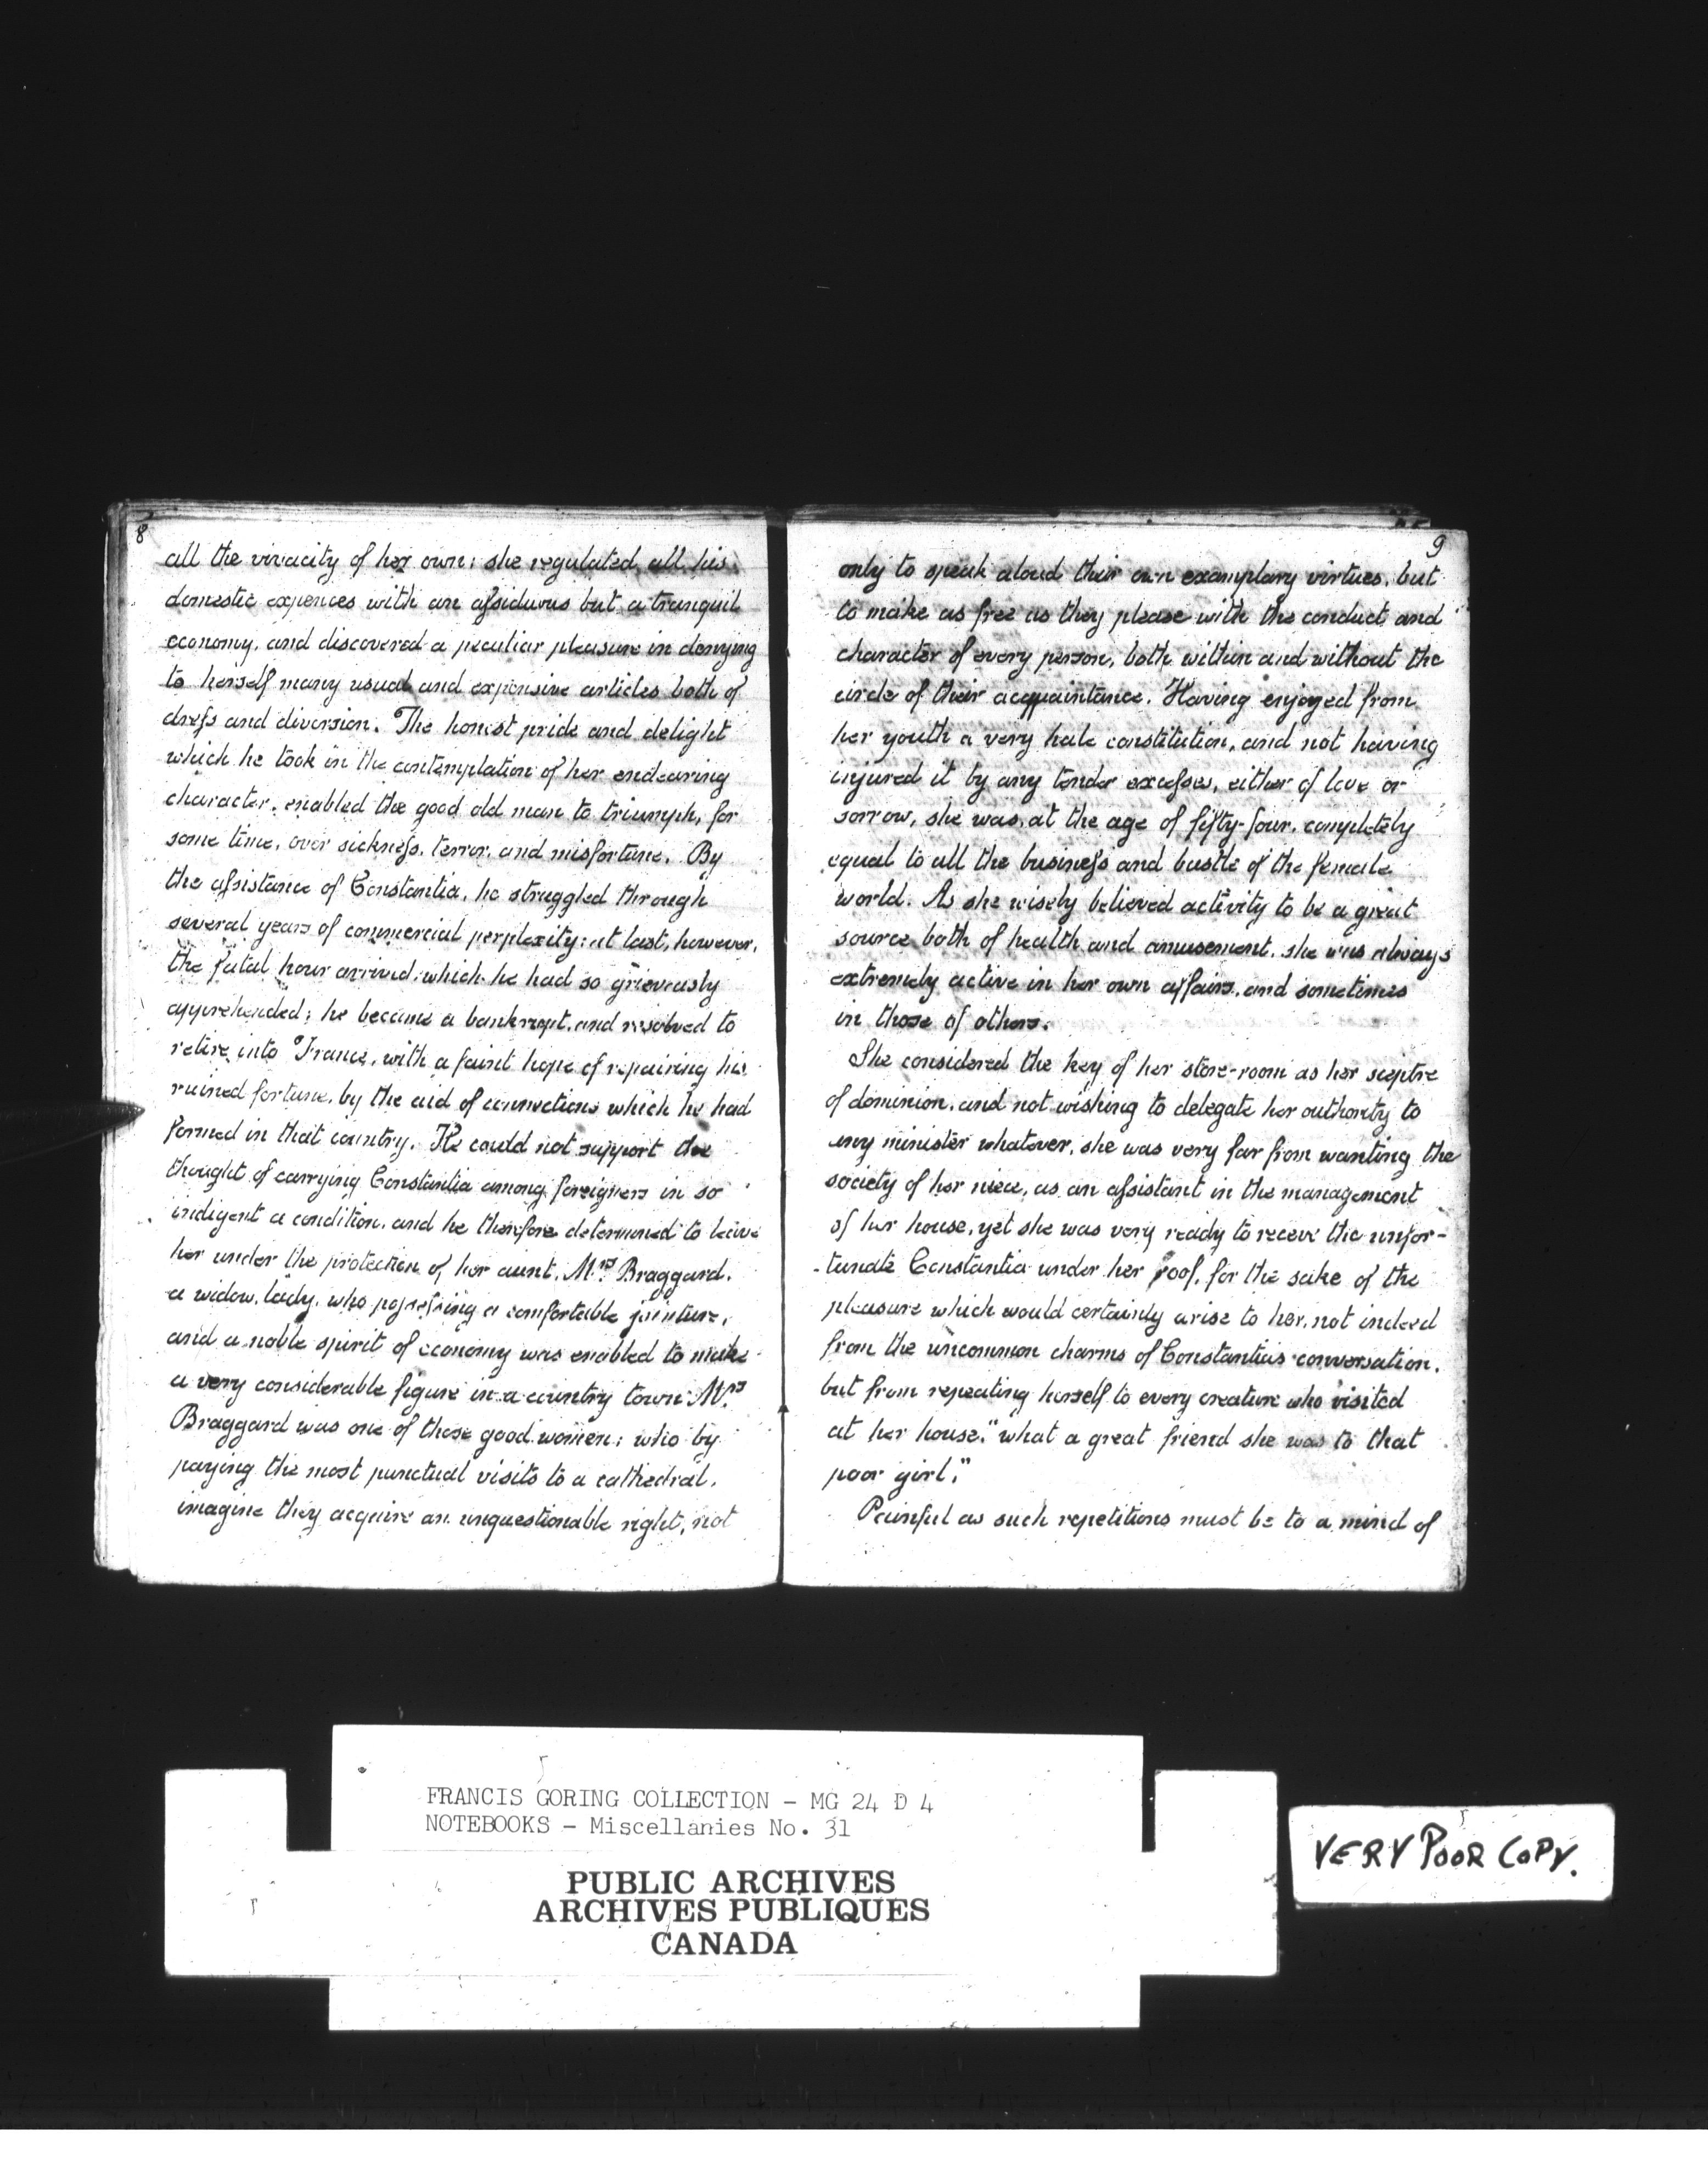 8
all the vivacity of her own; she regulated all his
domestic expences with an assiduous but a tranquil
economy, and discovered a peculiar pleasure in denying
to herself many usual and expensive articles both of
dress and diversion. The honest pride and delight
which he took in the contemplation of her endearing
character, enabled the good old man to triumph, for
some time, over sickness, terror, and misfortune. By
the assistance of Constantia, he struggled through
several years of commercial perplexity; at last, however,
the fatal hour arrived, which he had so grievously
apprehended; he became a bankrupt, and resolved to
retire into France, with a faint hope of repairing his
ruined fortune, by the aid of connections which he had
formed in that country. He could not support the
thought of carrying Constantia among foreigners in so
indigent a condition, and he therefore determined to leave
her under the protection of her aunt, Mrs Braggard,
a widow lady, who possessing a comfortable jointure,
and a noble spirit of economy was enabled to make
a very considerable figure in a country town Mrs
Braggard was one of those good women; who by
paying the most punctual visits to a cathedral,
imagine they acquire an unquestionable right, not
9
only to speak aloud their own examplary virtues, but
to make as free as they please with the conduct and
character of every person, both within and without the
circle of their acquaintance. Having enjoyed from
her youth a very hale constitution, and not having
injured it by any tender excesses, either of love or
sorrow, she was, at the age of fifty-four, completely
equal to all the business and bustle of the female
world. As she wisely believed activity to be a great
source both of health and amusement, she was always
extremely active in her own affairs, and sometimes
in those of others.
She considered the key of her store-room as her sceptre
of dominion, and not wishing to delegate her authority to
any minister whatever, she was very far from wanting the
society of her niece, as an assistant in the management
of her house, yet she was very ready to receve the unfor-
-tunate Constantia under her roof, for the sake of the
pleasure which would certainly arise to her, not indeed
from the uncommon charms of Constantias conversation,
but from repeating herself to every creature who visited
at her house, "what a great friend she was to that
poor girl."
Painful as such repetitions must be to a mind of
FRANCIS GORING COLLECTION - MG 24 D 4
NOTEBOOKS - Miscellanies No. 31
PUBLIC ARCHIVES
ARCHIVES PUBLIQUES
CANADA
VERY POOR COPY.